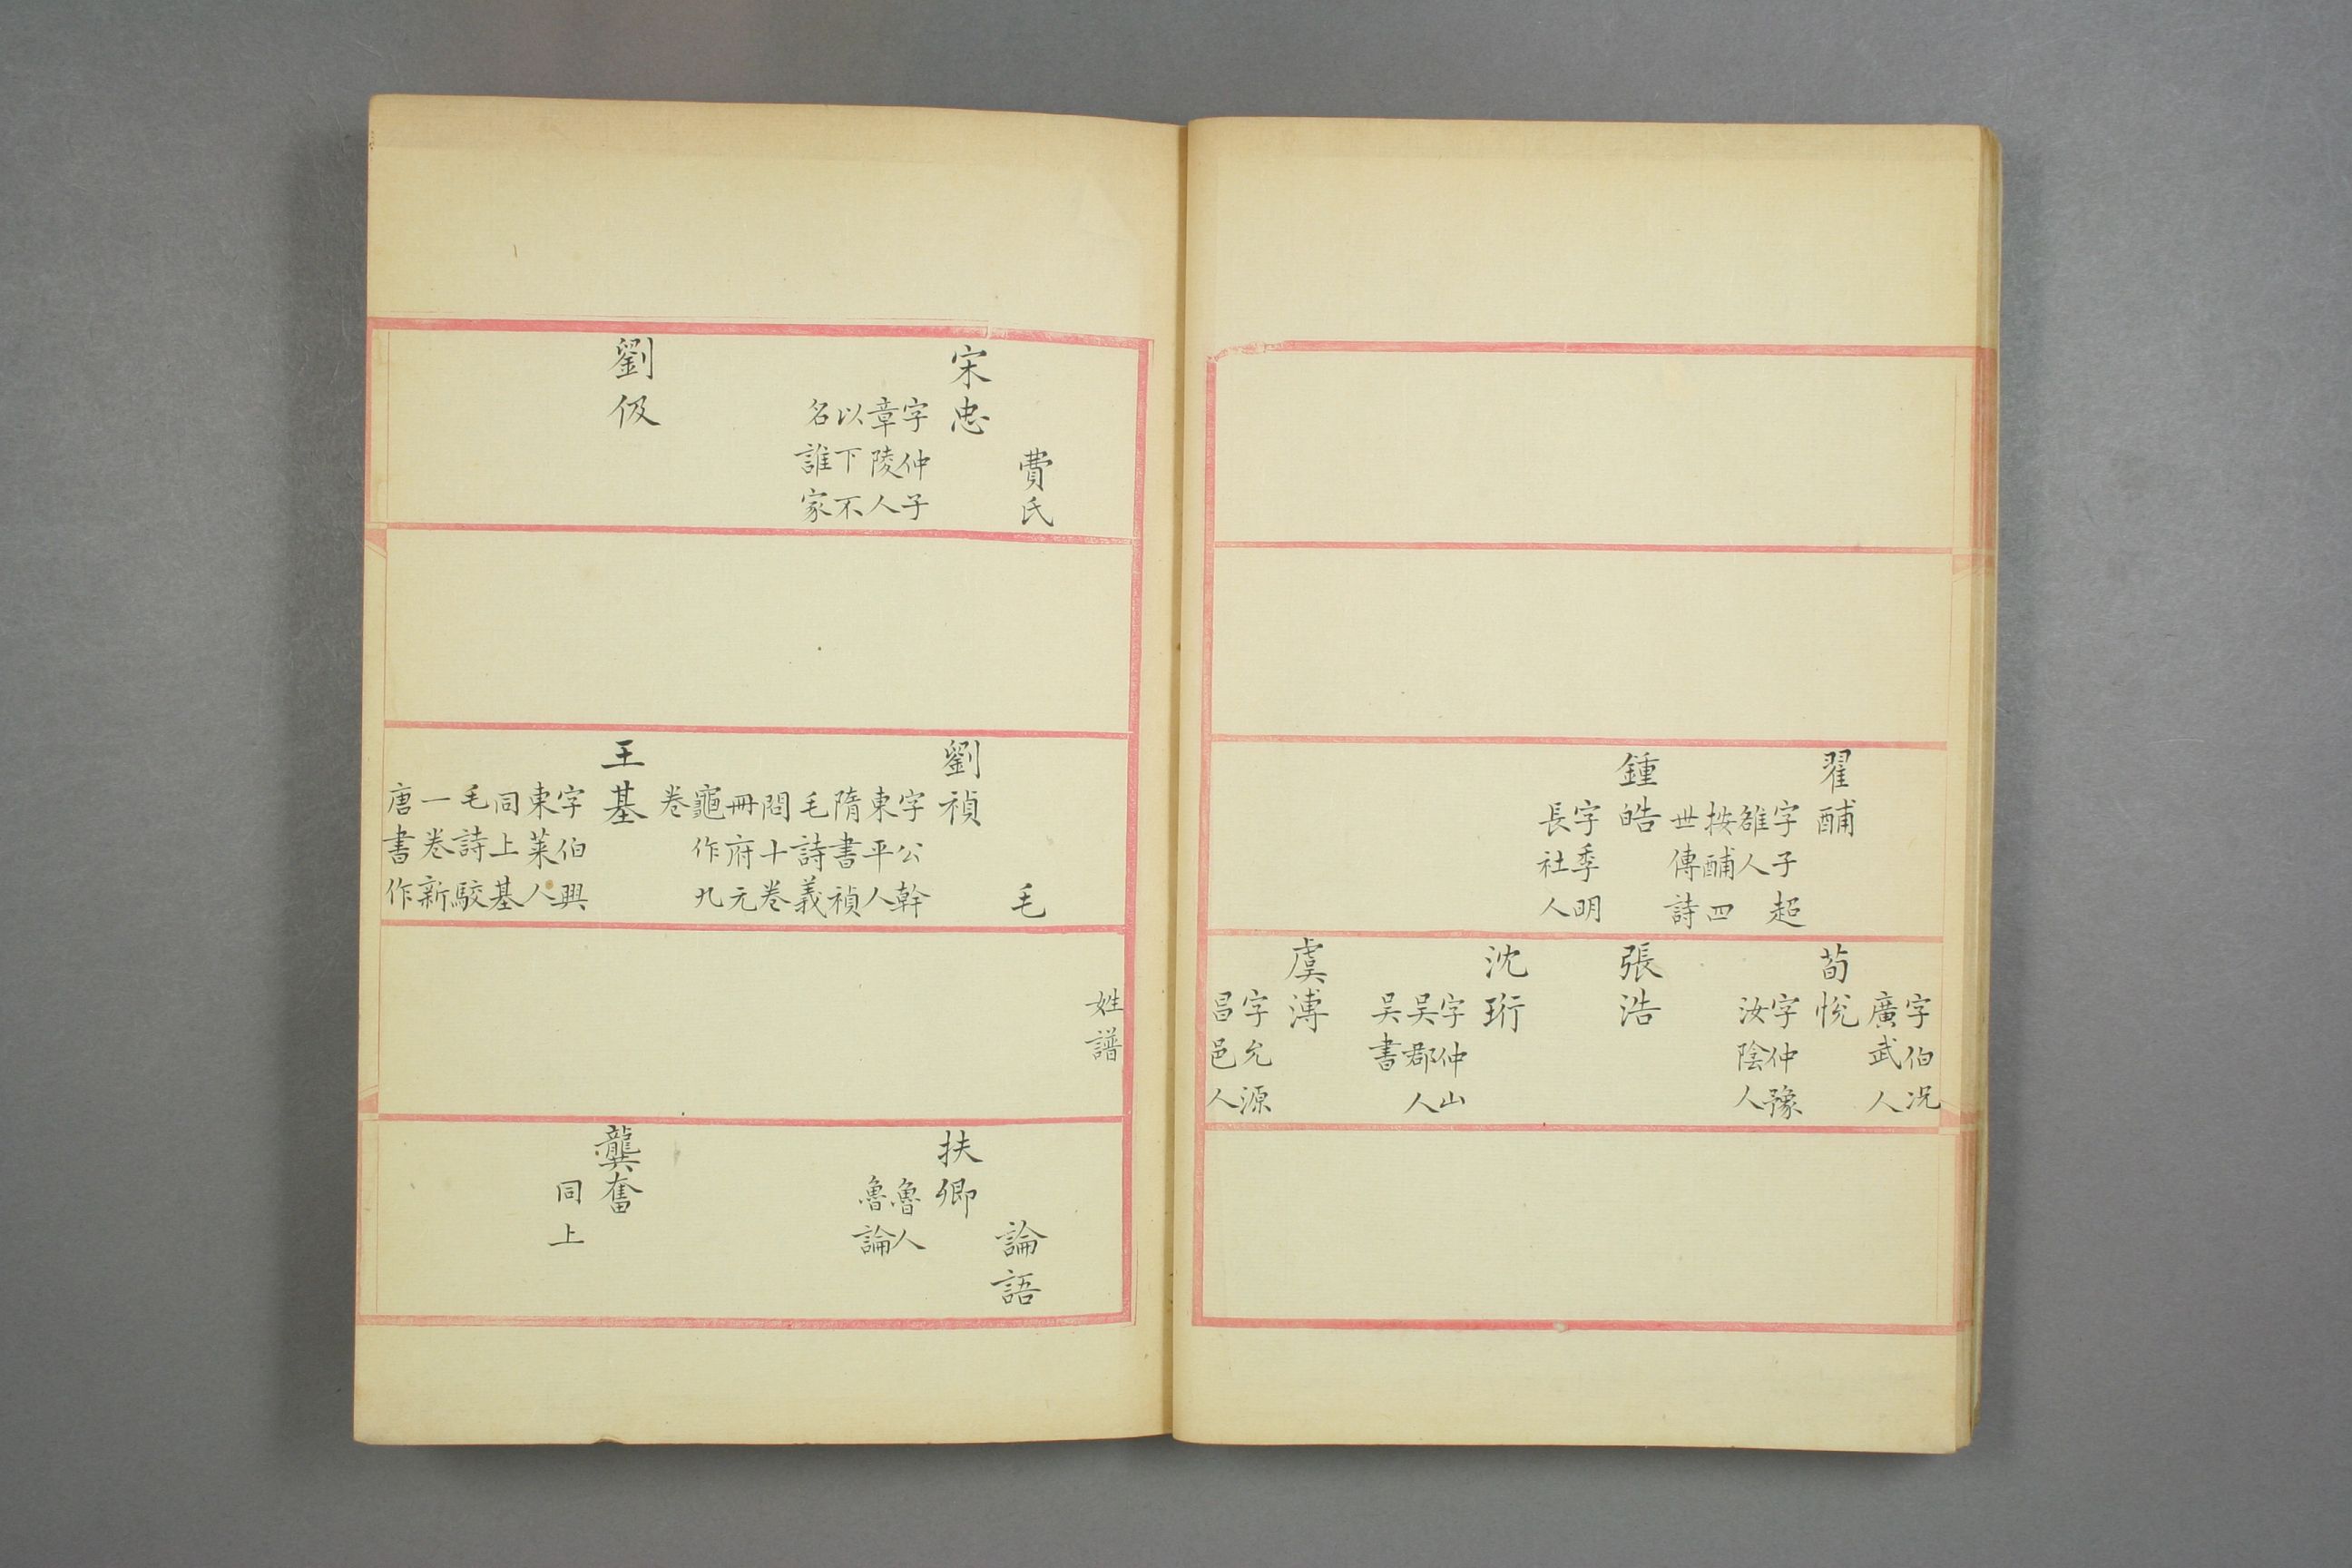 翟酺
字子超
雒人
按酺四
世傳詩
鍾皓
字季明
長社人
字伯况
廣武人
荀悅
字仲豫
汝陰人
張浩
沈珩
字仲山
吳郡人
吳書
虞溥
字允源
昌邑人
費氏
宋忠
字仲子
章陵人
以下不
名誰家
劉伋
毛
劉禎
字公幹
東平人
隋書禎
毛詩義
問十卷
冊府元
龜作九
卷
王基
字伯興
東萊人
同上基
毛詩駮
一卷新
唐書作
姓譜
論語
扶卿
魯人
魯論
龔奮
同上